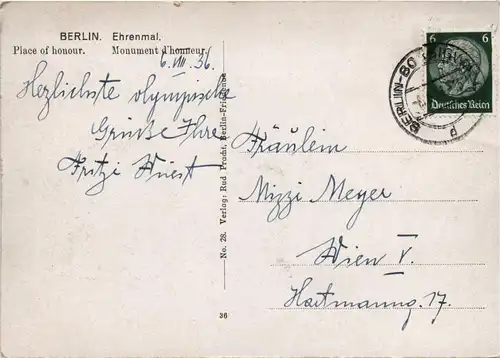 BERLIN. Ehrenmal.
Place of honour. Monument d'honneur.
6. VIII. 36.
Herzlichste olympische
Grüße Ihre
Fritzi
Fräulein
Mizzi Meyer
Wien V.
Hartmanng. 17.
No. 28. Verlag: Rud Pracht, Berlin-Friedenau
36
6 6
Deutsches Reich
BERLIN-